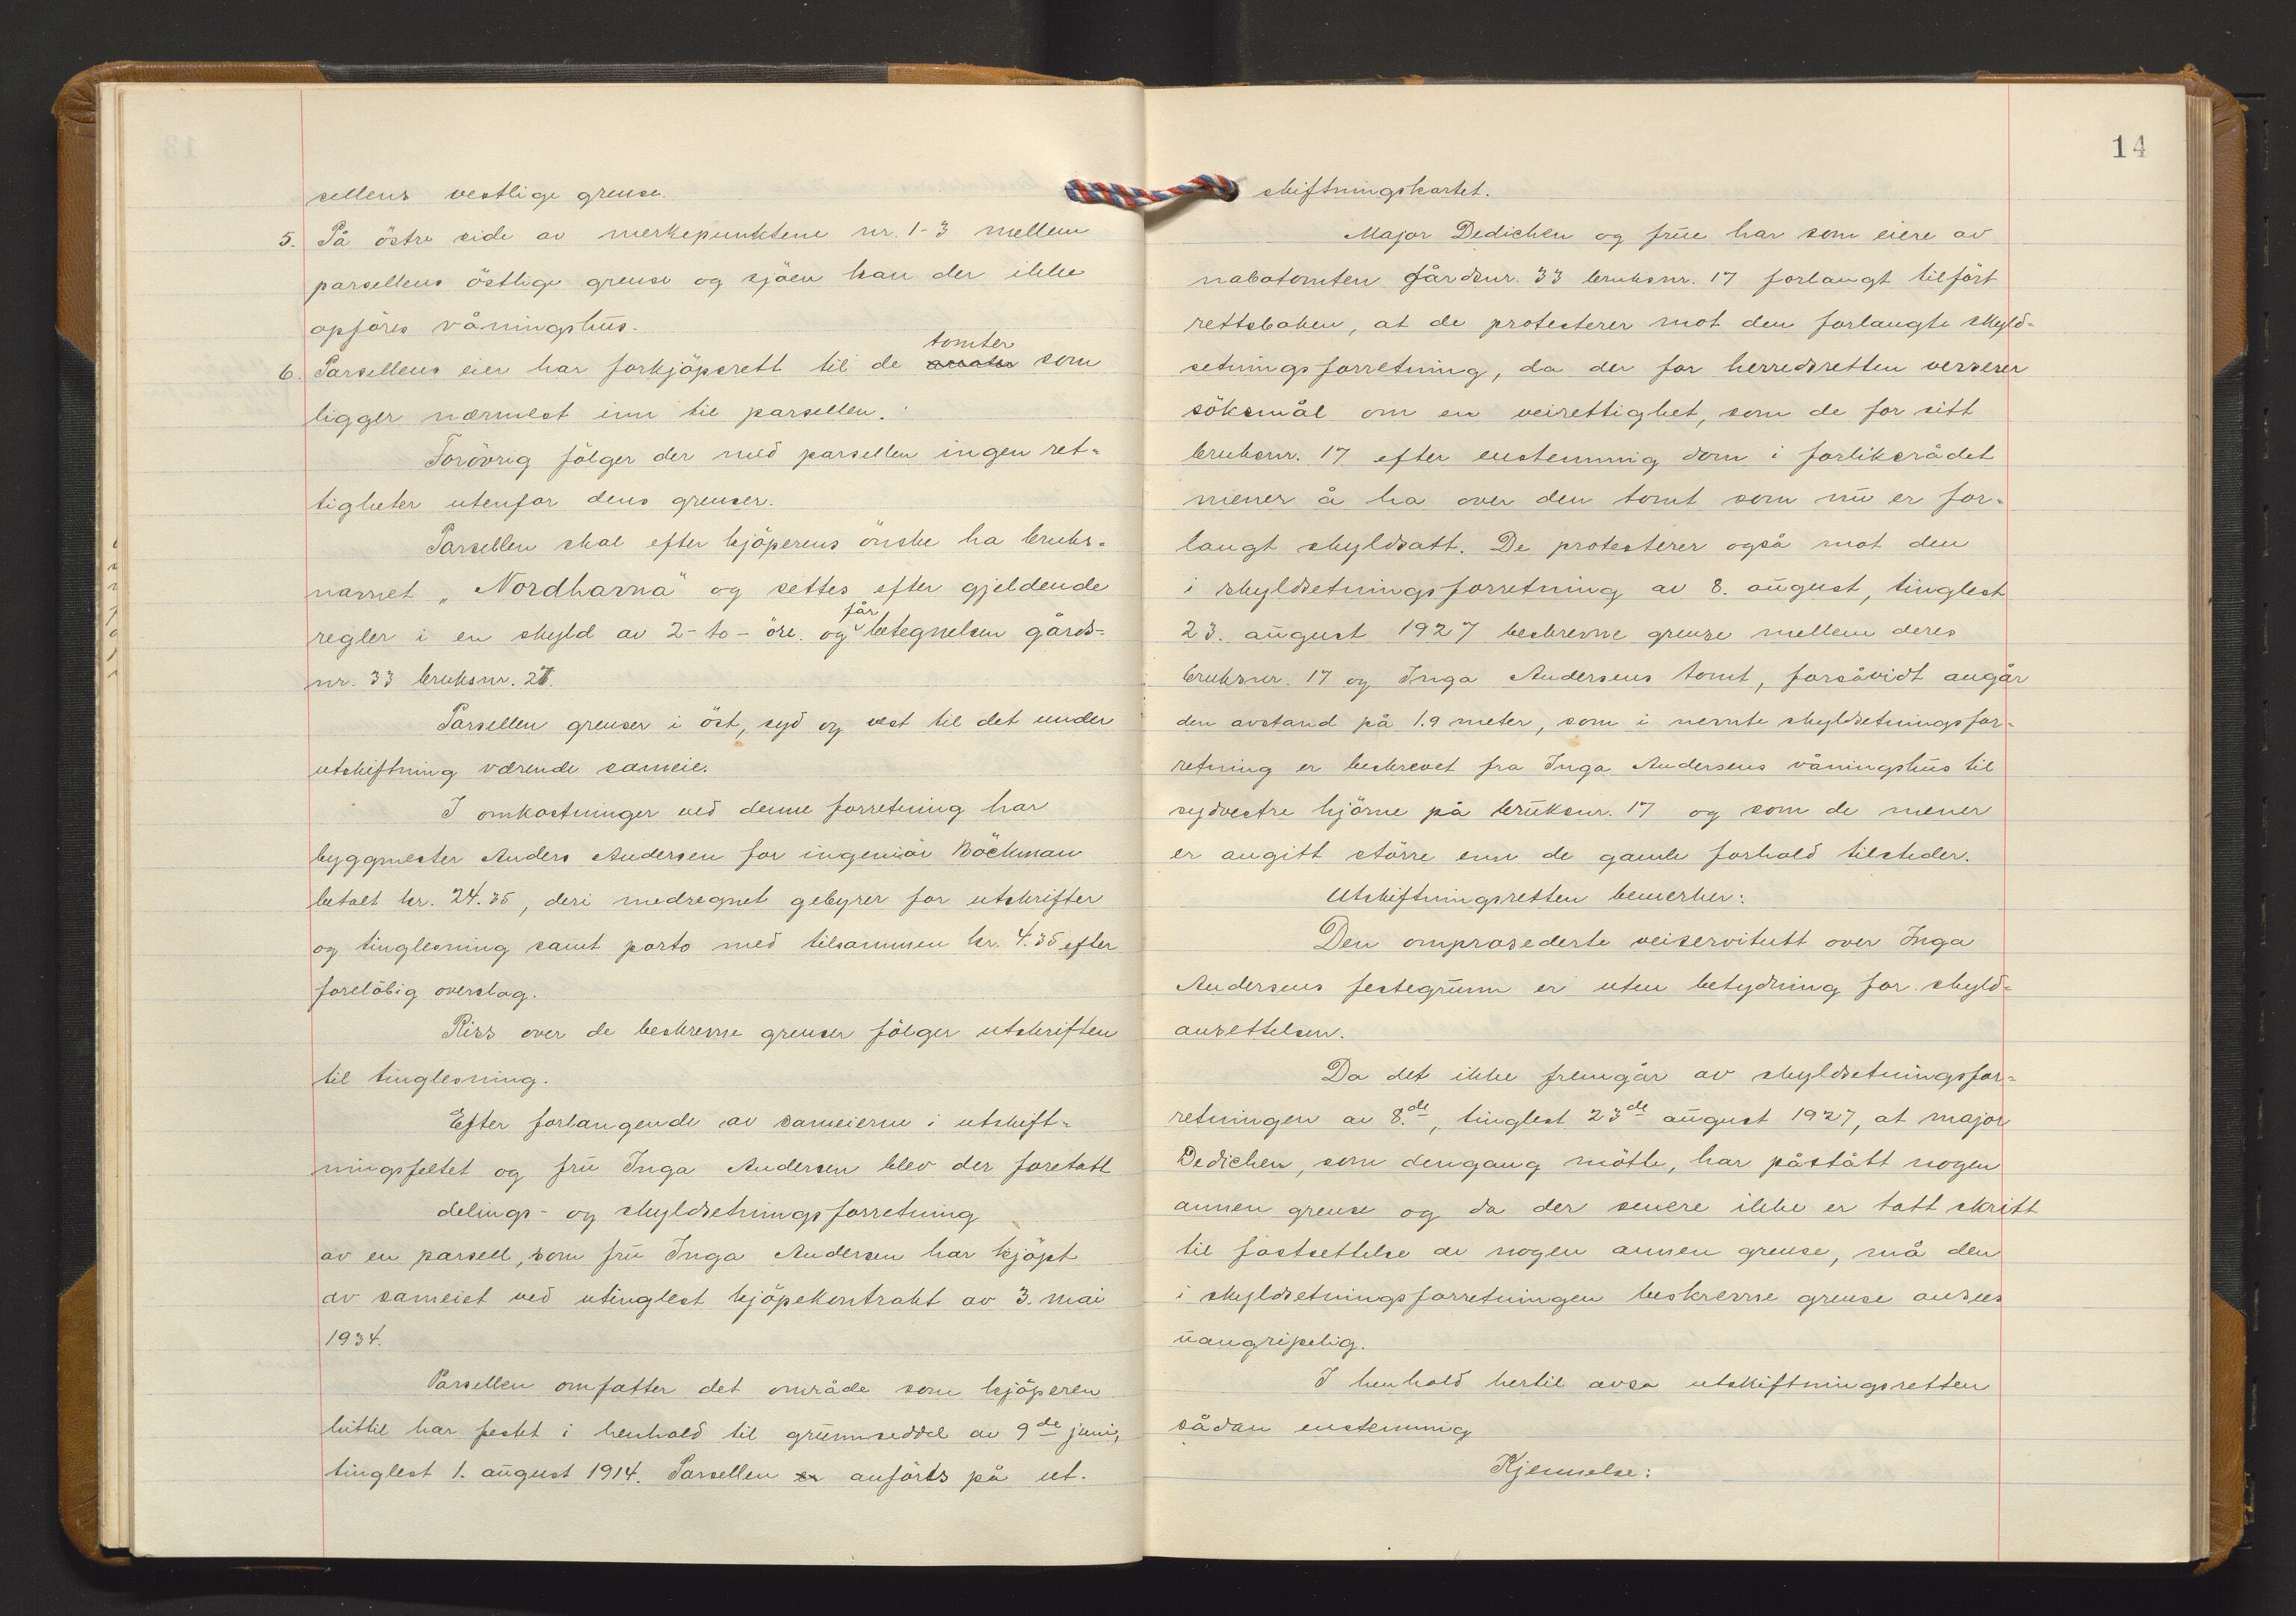 sellens vestlige grense.
5. På östre side av merkepunktene nr. 1-3 mellem
parsellens östlige grense og sjöen kan der ikke
opföres våningshus.
tomter
6. Parsellens eier har forkjöpsrett til de som
ligger nærmest inn til parsellen.
Forövrig fölger der med parsellen ingen ret-
tigheter utenfor dens grenser.
Parsellen skal efter kjöperens önske ha bruks-
navnet „Nordhavna" og settes efter gjeldende
får
regler i en skyld av 2-to- öre. og betegnelsen gårds-
nr. 33 bruksnr. 27.
Parsellen grenser i öst, syd og vest til det under
utskiftning værende sameie.
I omkostninger ved denne forretning har
byggmester Anders Andersen for ingeniör Böckman
betalt kr. 24.35, deri medregnet gebyrer for utskrifter
og tinglesning samt porto med tilsammen kr. 4.35 efter
forelöbig overslag.
Riss over de beskrevne grenser fölger utskriften
til tinglesning.
Efter forlangende av sameierne i utskift-
ningsfeltet og fru Inga Andersen blev der foretatt
delings- og skyldsetningsforretning
av en parsell, som fru Inga Andersen har kjöpt
av sameiet ved utinglest kjöpekontrakt av 3. mai
1934.
Parsellen omfatter det område som kjöperen
hittil har festet i henhold til grunnseddel av 9de juni,
tinglest 1. august 1914. Parsellen er anförts på ut-
14
skiftningskartet.
Major Dedichen og frue har som eiere av
nabotomten gårdsnr. 33 bruksnr. 17 forlangt tilfört
rettsboken, at de protesterer mot den forlangte skyld-
setningsforretning, da der for herredsretten verserer
söksmål om en veirettighet, som de for sitt
bruksnr. 17 efter enstemmig dom i forliksrådet
mener å ha over den tomt som nu er for-
langt skyldsatt. De protesterer også mot den
i skyldsetningsforretning av 8. august, tinglest
23. august 1927 beskrevne grense mellem deres
bruksnr. 17 og Inga Andersens tomt, forsåvidt angår
den avstand på 1.9 meter, som i nevnte skyldsetningsfor-
retning er beskrevet fra Inga Andersens våningshus til
sydvestre hjörne på bruksnr. 17 og som de mener
er angitt större enn de gamle forhold tilsteder.
Utskiftningsretten bemerker:
Den omprosederte veiservitutt over Inga
Andersens festegrunn er uten betydning for skyld-
ansettelsen.
Da det ikke fremgår av skyldsetningsfor-
retningen av 8.de, tinglest 23de august 1927, at major
Dedichen, som dengang mötte, har påstått nogen
annen grense og da der senere ikke er tatt skritt
til fastsettelse av nogen annen grense, må den
i skyldsetningsforretningen beskrevne grense ansees
uangripelig.
I henhold hertil avsa utskiftningsretten
sådan enstemmig
Kjennelse: